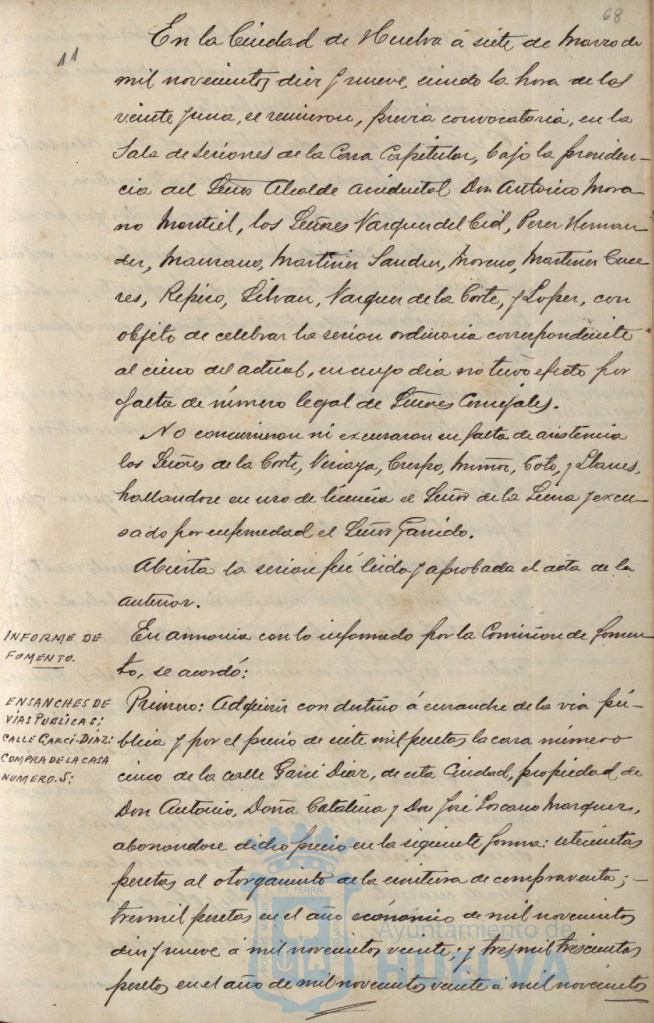 68
11
En la Ciudad de Huelva á siete de Marzo de
mil novecientos diez y nueve, siendo la hora de las
veinte y una, se reunieron, previa convocatoria, en la
Sala de Sesiones de la Casa Capitular, bajo la presiden-
cia del Señor Alcalde accidental Don Antonio Mora-
no Montiel, los Señores Vazquez del Cid, Perez Hernan-
dez, Manzano, Martinez Sanchez, Moreno, Martinez Cace-
res, Repiso, Silvan, Vazquez de la Corte, y Lopez, con
objeto de celebrar la sesion ordinaria correspondiente
al cinco del actual, en cuyo dia no tuvo efecto por
falta de número legal de Señores Concejales.
No concurrieron ni excusaron su falta de asistencia
los Señores de la Corte, Crespo, Muñoz, Coto, y Llanes,
hallandose en uso de licencia el Señor de la y excu-
sado por enfermedad el Señor Garrido.
Abierta la sesion fué leida y aprobada el acta de la
anterior.
INFORME DE
FOMENTO.
En armonia con lo informado por la Comision de Fomen-
to, se acordó:
ENSANCHES DE
VÍAS PUBLICAS:
CALLE GARCI-DIAZ:
COMPRA DE LA CASA
NUMERO.5:
Primero: Adquirir con destino á ensanche de la via pú-
blica y por el precio de siete mil pesetas la casa número
cinco de la calle Garci Diaz, de esta Ciudad, propiedad de
Don Antonio, Doña Catalina y Don José Loscano Marquez,
abonandose dicho precio en la siguiente forma: setecientas
pesetas al otorgamiento de la escritura de compraventa;
tres mil pesetas en el año económico de mil novecientos
diez y nueve á mil novecientos veinte; y tres mil trescientas
pesetas en el año de mil novecientos veinte a mil novecientos
Ayuntamiento de
HUELVA